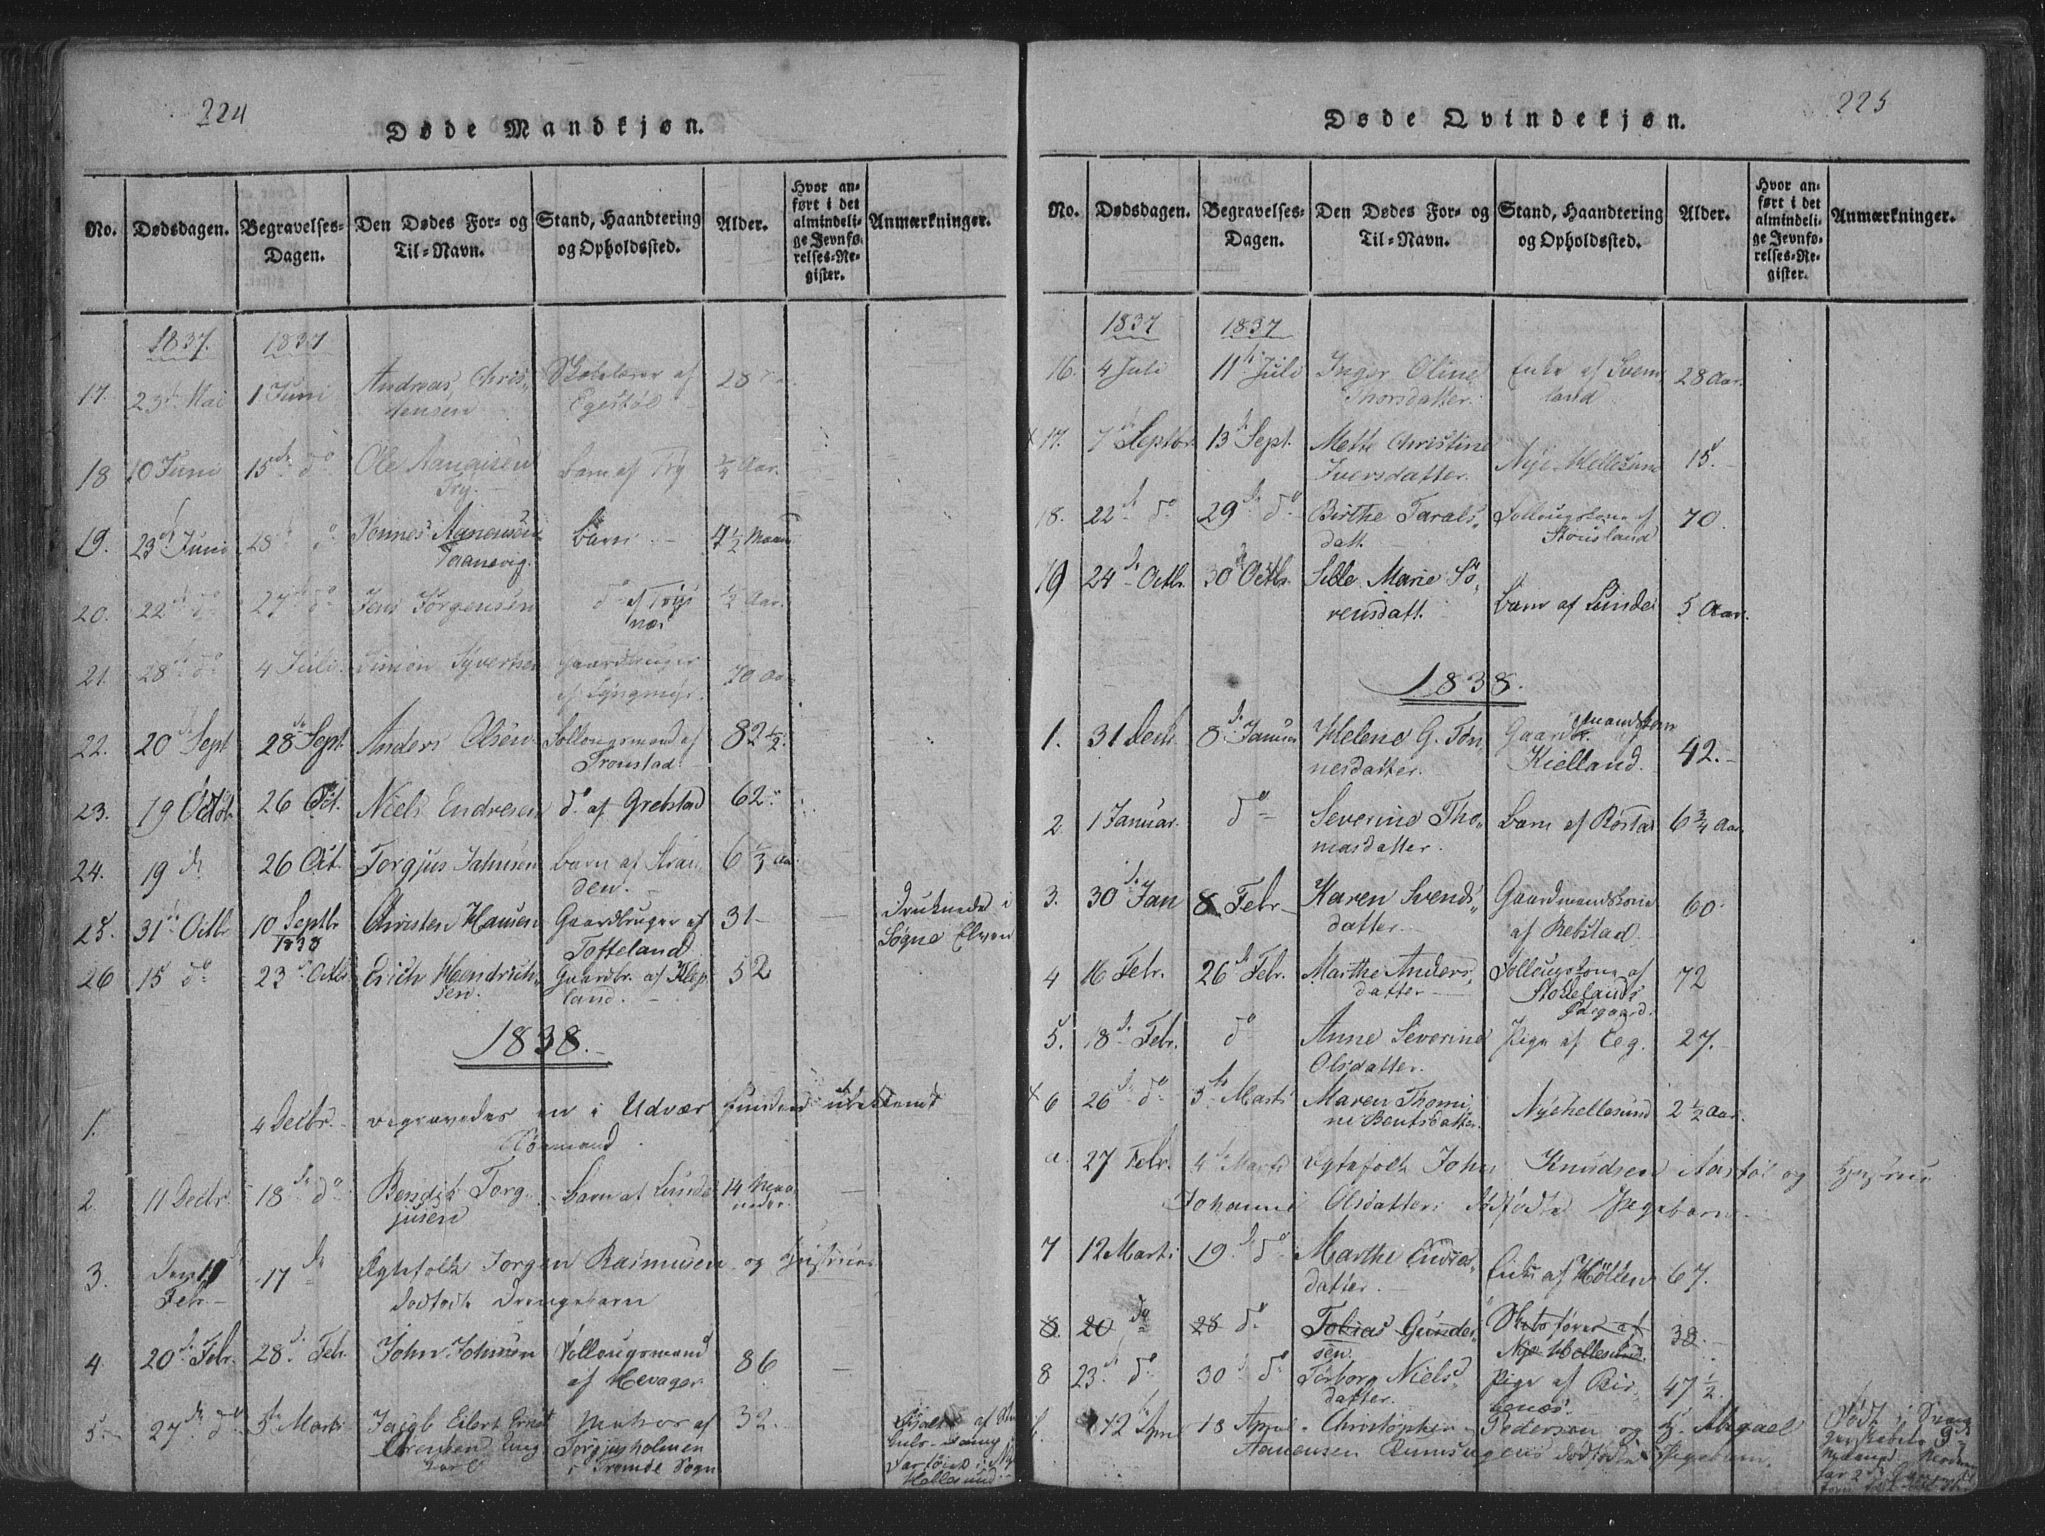 224
Døde Mandkjøn.
No. Dødsdagen. Begravelses-Dagen. Den Dødes For- og Til-Navn. Stand, Haandtering og Opholdssted. Alder. Hvor anført i det almindelige Jevnførelses-Register. Anmærkninger.
1837. 1837
17. 23 Mai 1 Juni Andreas Christensen af Egestøl 28
18 10 Juni 15 do Ole Aanensen Try. barn af Try Aar.
19. 23 Juni 28 do Tønnes Aanensen barn 4½ Maan
20. 22 do 27 do Jens Jørgensen do af Trysnæs ½ Aar.
21. 28 do 4 Juli Simon Syvertsen Gaardbruger af Lyngmyr. 70 Aar
22. 20 Sept 28 Sept. Anders Olsen Follougsmand af Tronstad. 82½.
23. 19 Octbr 26 Oct. Niels Endresen do af Grebstad 62
24. 19 do 26 Oct. Torgjus Jahnsen barn af Stranden. 6⅓ Aar
25. 31 Octbr 10 Septbr 1838 Christen Hansen Gaardbruger af Tofteland 31 Druknede i Søgne Elven
26 15 do 23 Octbr Erich Hendrichsen. Gaardbr. af Klepland. 52
1838.
1. 4 Decbr. begravedes en i Udvær funden ubekiendt Sømand.
2. 11 Decbr. 18 do Bendix Torgjusen barn af Lunde 14 Maaneder.
3. Den 11 Febr. 17 do Ægtefolk Jørgen Rasmusen og Hustrues dødfødte Drengebarn
4 20 Febr. 28 Febr. John Johnsen Follougsmand af Hevager 86
5 27 do 5 Marti Jacob Eilert Ernst Lorentsen Ungkarl Matros af Torjusholmen i Tromøe Sogn 32.
Hellesund
225
Døde Qvindekjøn.
No. Dødsdagen. Begravelses-Dagen. Den Dødes For- og Til-Navn. Stand, Haandtering og Opholdssted. Alder. Hvor anført i det almindelige Jevnførelses-Register. Anmærkninger.
1837 1837
16. 4 Juli 11 Juli Inger Oline Thorsdatter. Enke af 28 Aar.
× 17. 7 Septbr. 13 Sept. Mette Christine Iversdatter. Nye Hellesund 15.
18. 22 do 29 do Birthe Taralsdatt. Follougskone af Stousland 70.
19 24 Octbr. 30 Octbr. Sille Marie Sørensdatt. barn af Lunde 5 Aar.
1838.
1. 31 Decbr 8 Januar Helene G. Tønnesdatter. Gaardmandskone af Kielland. 42.
2. 1 Januar. do Severine Thomasdatter. barn af Røstad 6¾ Aar
3. 30 Jan 8 Febr. Karen Svendsdatter Gaardmandskone af Rebstad 60
4 16 Febr. 26 Febr. Marthe Andersdatter Follougskone af Stokelands Ødegaard. 72
5. 18 Febr. do Anne Severine Olsdatter. Pige af Eeg. 27.
× 6 26 do 5 Marti Maren Thomine Bentsdatter. Nyehellesund 2½ Aar.
a. 27 Febr. 4 Marti Ægtefolk John Knudsen Aarstøl og Hustrue Johanne Olsdatters dødfødte Pigebarn
7 12 Marti 19 do Marthe Endresdatter. Enke af Høllen 67.
8. 20 do 28 do Tobias Gundersen. af Nye Hellesund. 38
8 23 do 30 do Torborg Nielsdatter. Pige af Birkenæs 47½.
12 Apri 18 April Christopher Pedersen og H. Abigael Aanensen dødfødte Pigebarn. Født i